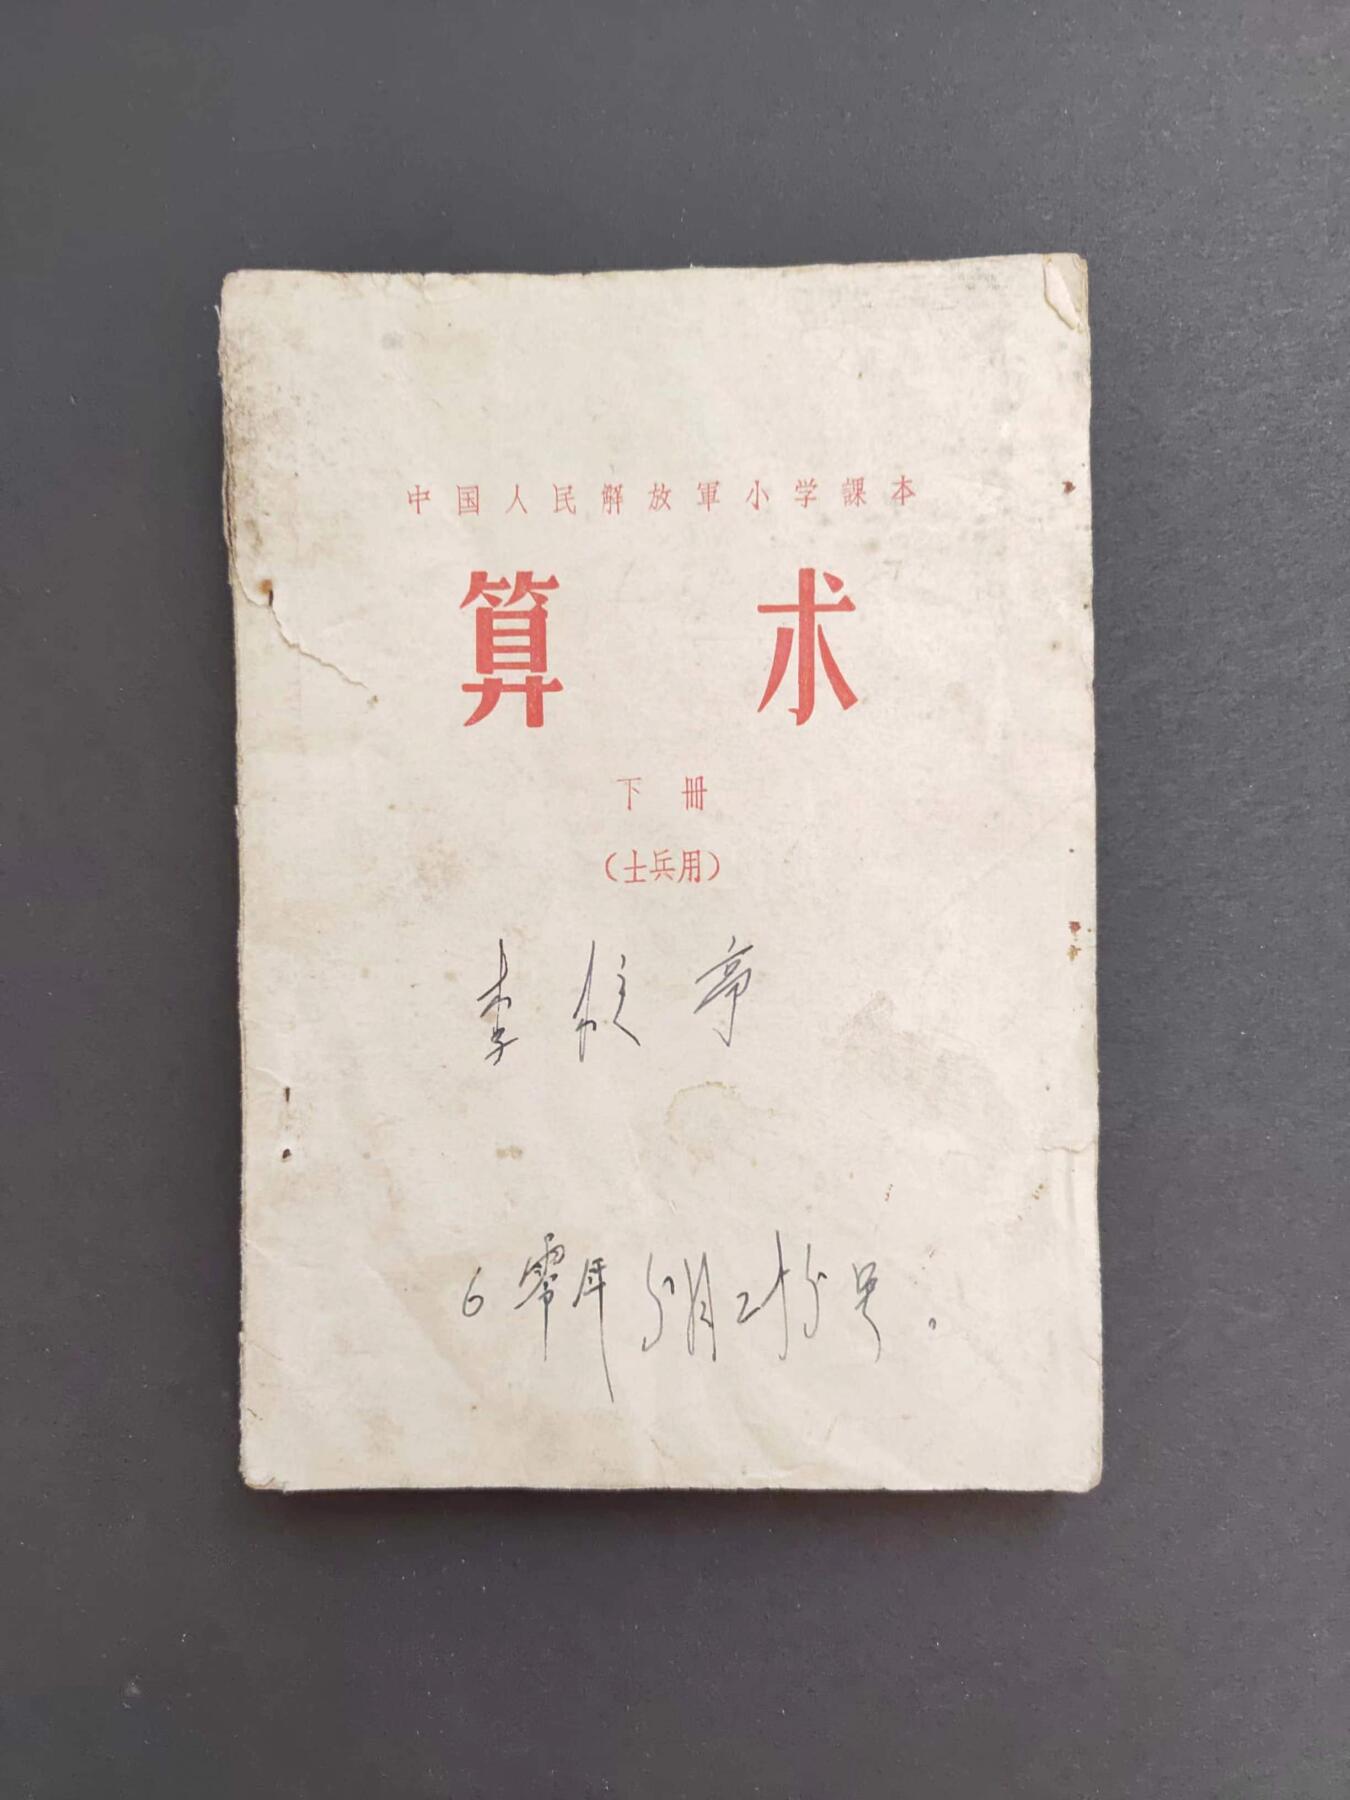 中国人民解放軍小学課本
算术
下册
(士兵用)
李 亭
6零年 月二 号。